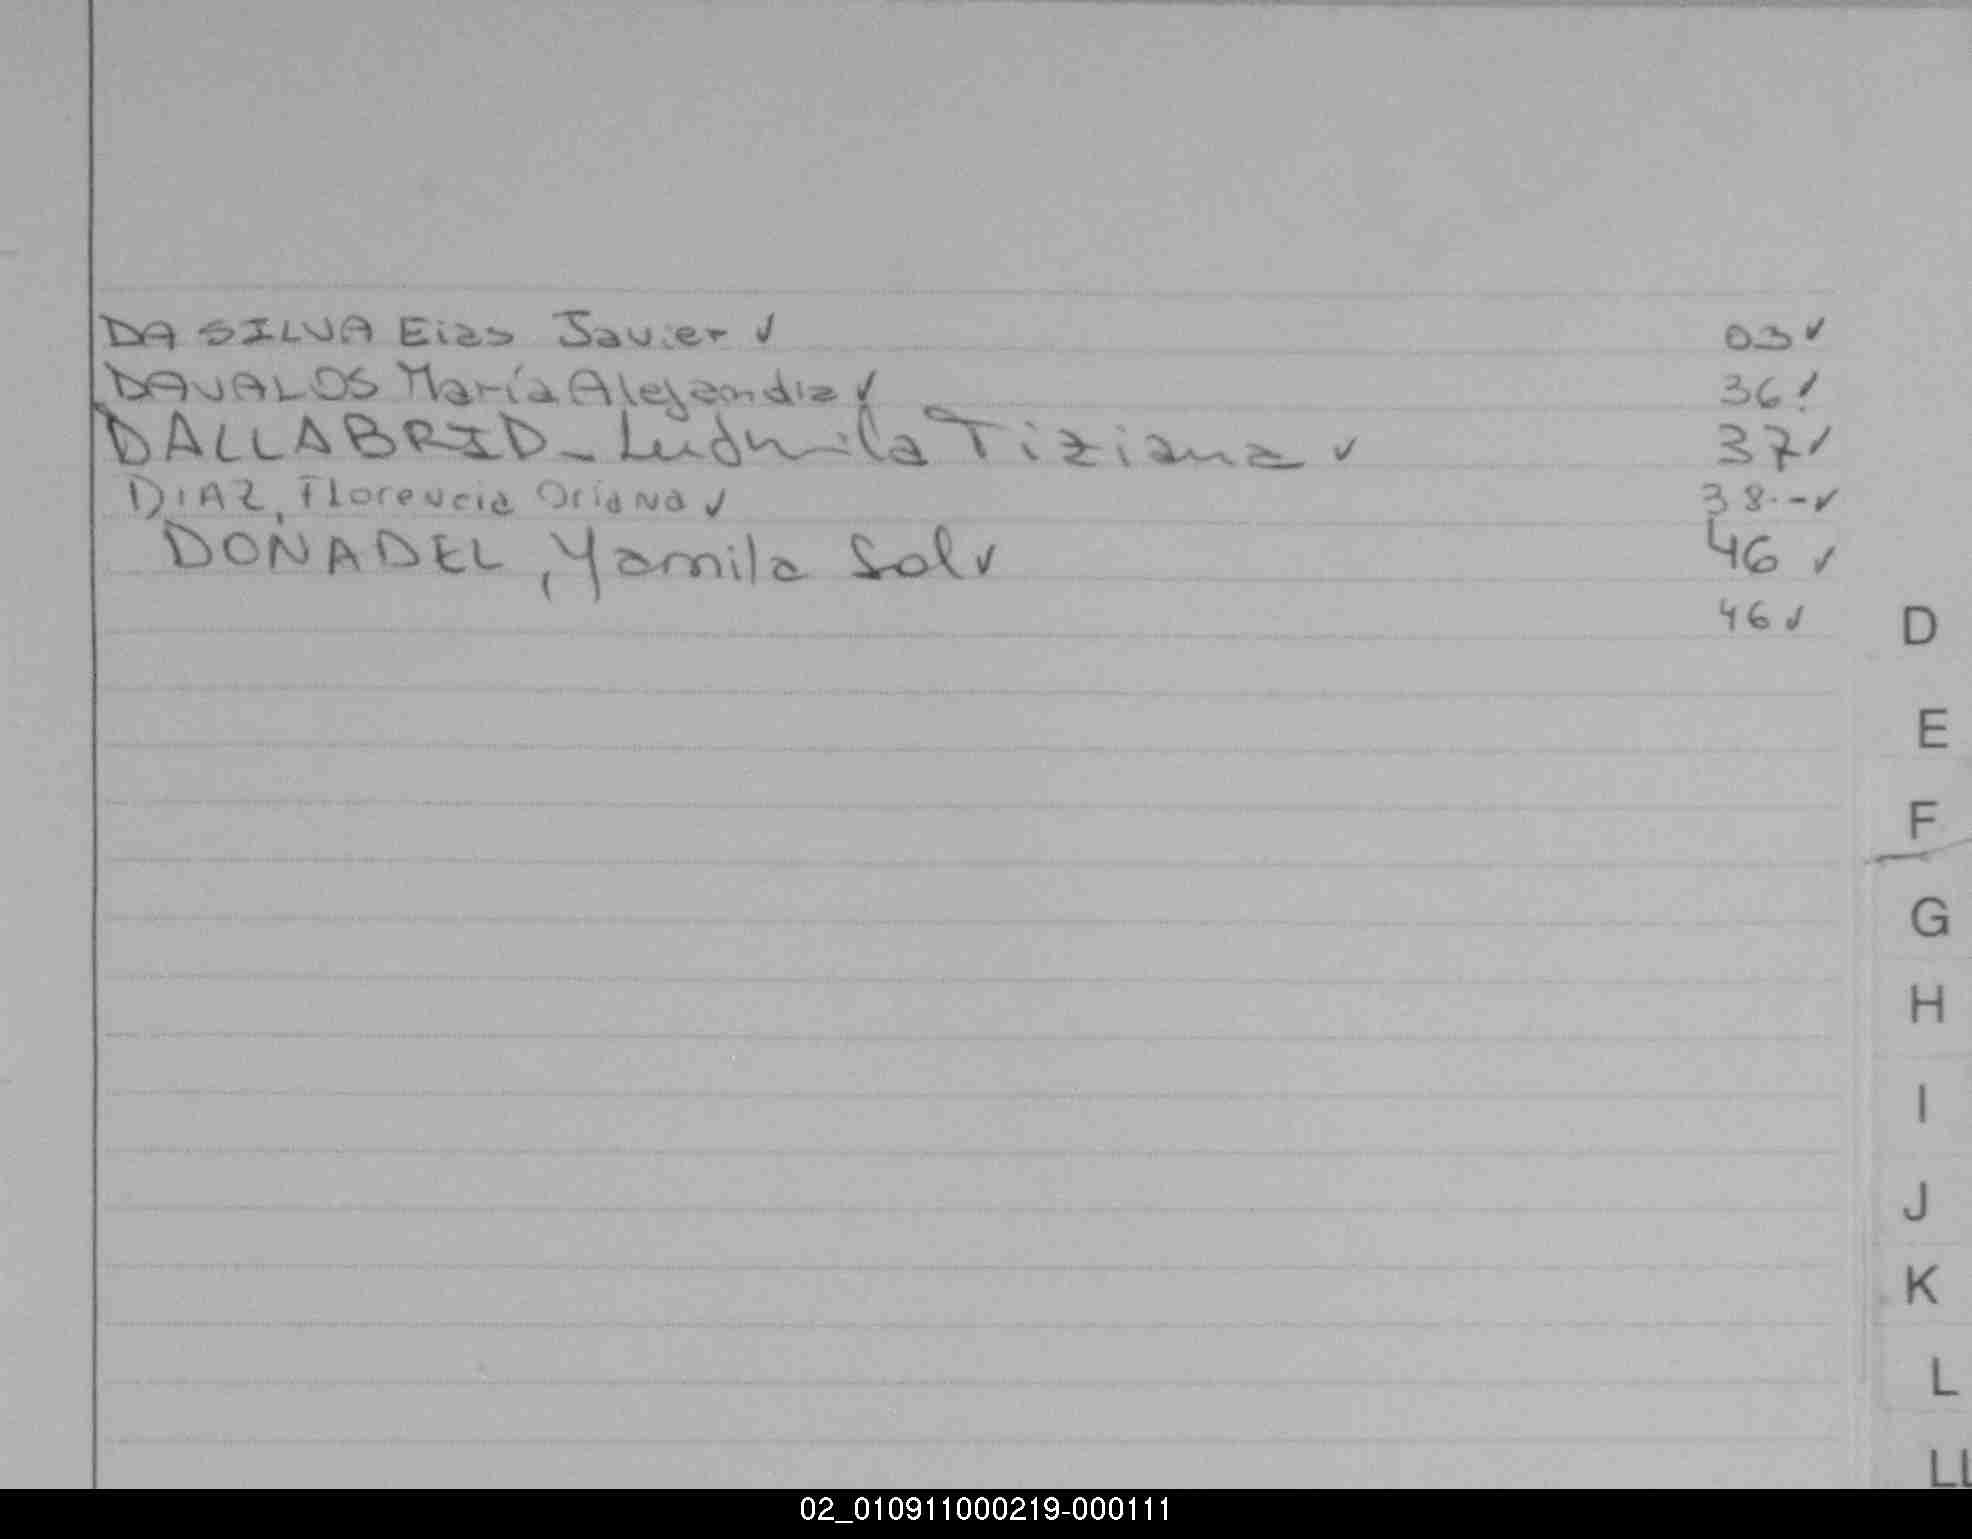 DA SILVA Eias Javier ✓ 03 ✓
DAVALOS María Alejandra ✓ 36 ✓
DALLABRID - Ludmila Tiziana ✓ 37 ✓
DIAZ, Florencia Oriana ✓ 38.-- ✓
DONADEL, Yamila Sol ✓ 46 ✓
46 ✓
D
E
F
G
H
I
J
K
L
LL
02_010911000219-000111